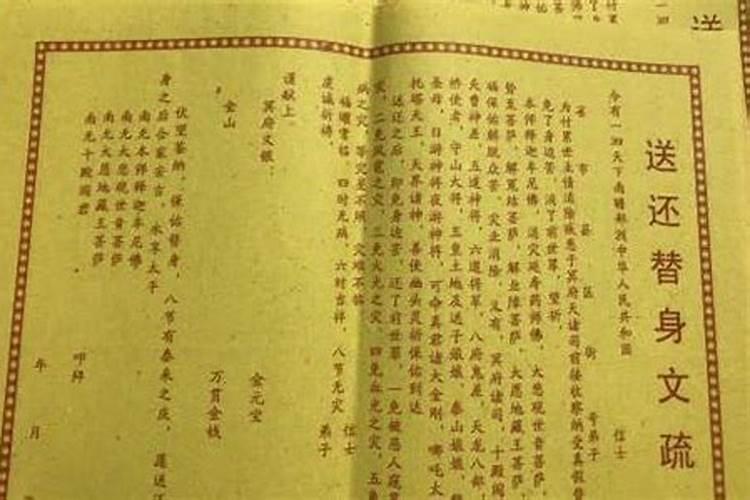 送还替身文疏
今有一四天下南赡部洲中华人民共和国
省 市 县 区 街 号弟子 信士
为付累世主债消除疾患于冥府天诸司前接收察纳受真假替
免了身边苦，消了前世罪，望祈
本师释迦牟尼佛，消灾延寿药师佛，大悲观世音菩萨
势至菩萨，解冤结菩萨，解业障菩萨，大愿地藏王菩萨，
福保佑解脱众苦，灾业消除，又有，冥府诸司，十殿阎
天曹神差，五道神将，六道将军，八府鬼差，天龙八部，
桥使者，守山大将，五皇土地及送子娘娘，泰山娘娘，
圣母，日游神将夜游神将，可命真君诸大金刚，哪吒太
托塔天王，天界诸神，善使幽头灵祈保佑到达
送还之后，即免身边苦，还了前世罪，一免被恶人
灾，二免风雹之灾，三免火光之灾，四免血光之灾，五鱼
病之灾，等灾星不照，灾难不临
福曜常临 四时无病，六时吉祥，八节无灾 信士
虔诚祈祷， 弟子
谨献上
冥府文银， 金元宝
金山 万贯金钱
伏望鉴纳，保佑替身，八节有泰来之庆，愿送还
身之后合家安吉，永享太平
南无本师释迦牟尼佛
南无大悲观世音菩萨
南无大愿地藏王菩萨
南无十殿阎君
叩拜
年 月